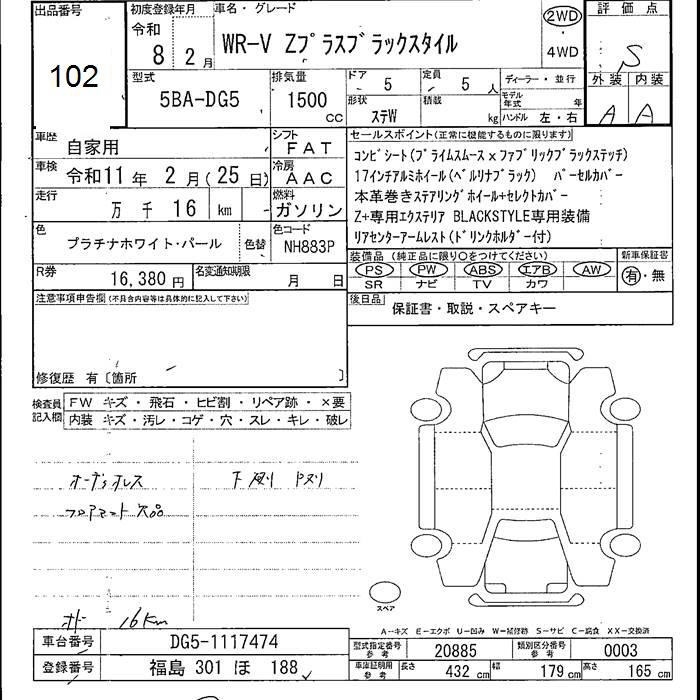 出品番号
102
初度登録年月
令和
8 2 月
車名・グレード
WR-V Zプラスブラックスタイル
2WD
・
4WD
評価点
S
外装 内装
A A
型式
5BA-DG5
排気量
1500
cc
ドア 5
定員 5 人
形状 ステW
積載 kg
ディーラー・並行
モデル年式 年
ハンドル 左・右
車歴 自家用
シフト FAT
車検 令和11 年 2 月(25 日)
冷房 AAC
走行 万 千 16 km
燃料 ガソリン
色 プラチナホワイト・パール
色替
色コード NH883P
R券 16,380 円
名変通知期限 月 日
セールスポイント(正常に機能するものに限ります)
コンビシート(プライムスムース×ファブリックブラックステッチ)
17インチアルミホイール(ベルリナブラック) バーセルカバー
本革巻きステアリングホイール+セレクトカバー
Z+専用エクステリア BLACKSTYLE専用装備
リアセンターアームレスト(ドリンクホルダー付)
装備品 (純正品に限り〇をつけてください)
PS PW ABS エアB AW
SR ナビ TV カワ
新車保証書
有・無
後日品 保証書・取説・スペアキー
注意事項申告欄(不具合内容等は具体的に記入して下さい)
修復歴 有〔箇所 〕
検査員記入欄
FW キズ・飛石・ヒビ割・リペア跡・×要
内装 キズ・汚レ・コゲ・穴・スレ・キレ・破レ
オーディオレス
フロアマット欠品
オド 16Km
スペア
A--キズ E--エクボ U--凹み W--補修跡 S--サビ C--腐食 XX--交換済
車台番号 DG5-1117474
登録番号 福島 301 ほ 188
型式指定番号参考 20885
類別区分番号参考 0003
車庫証明用参考
長さ 432 cm
幅 179 cm
高さ 165 cm